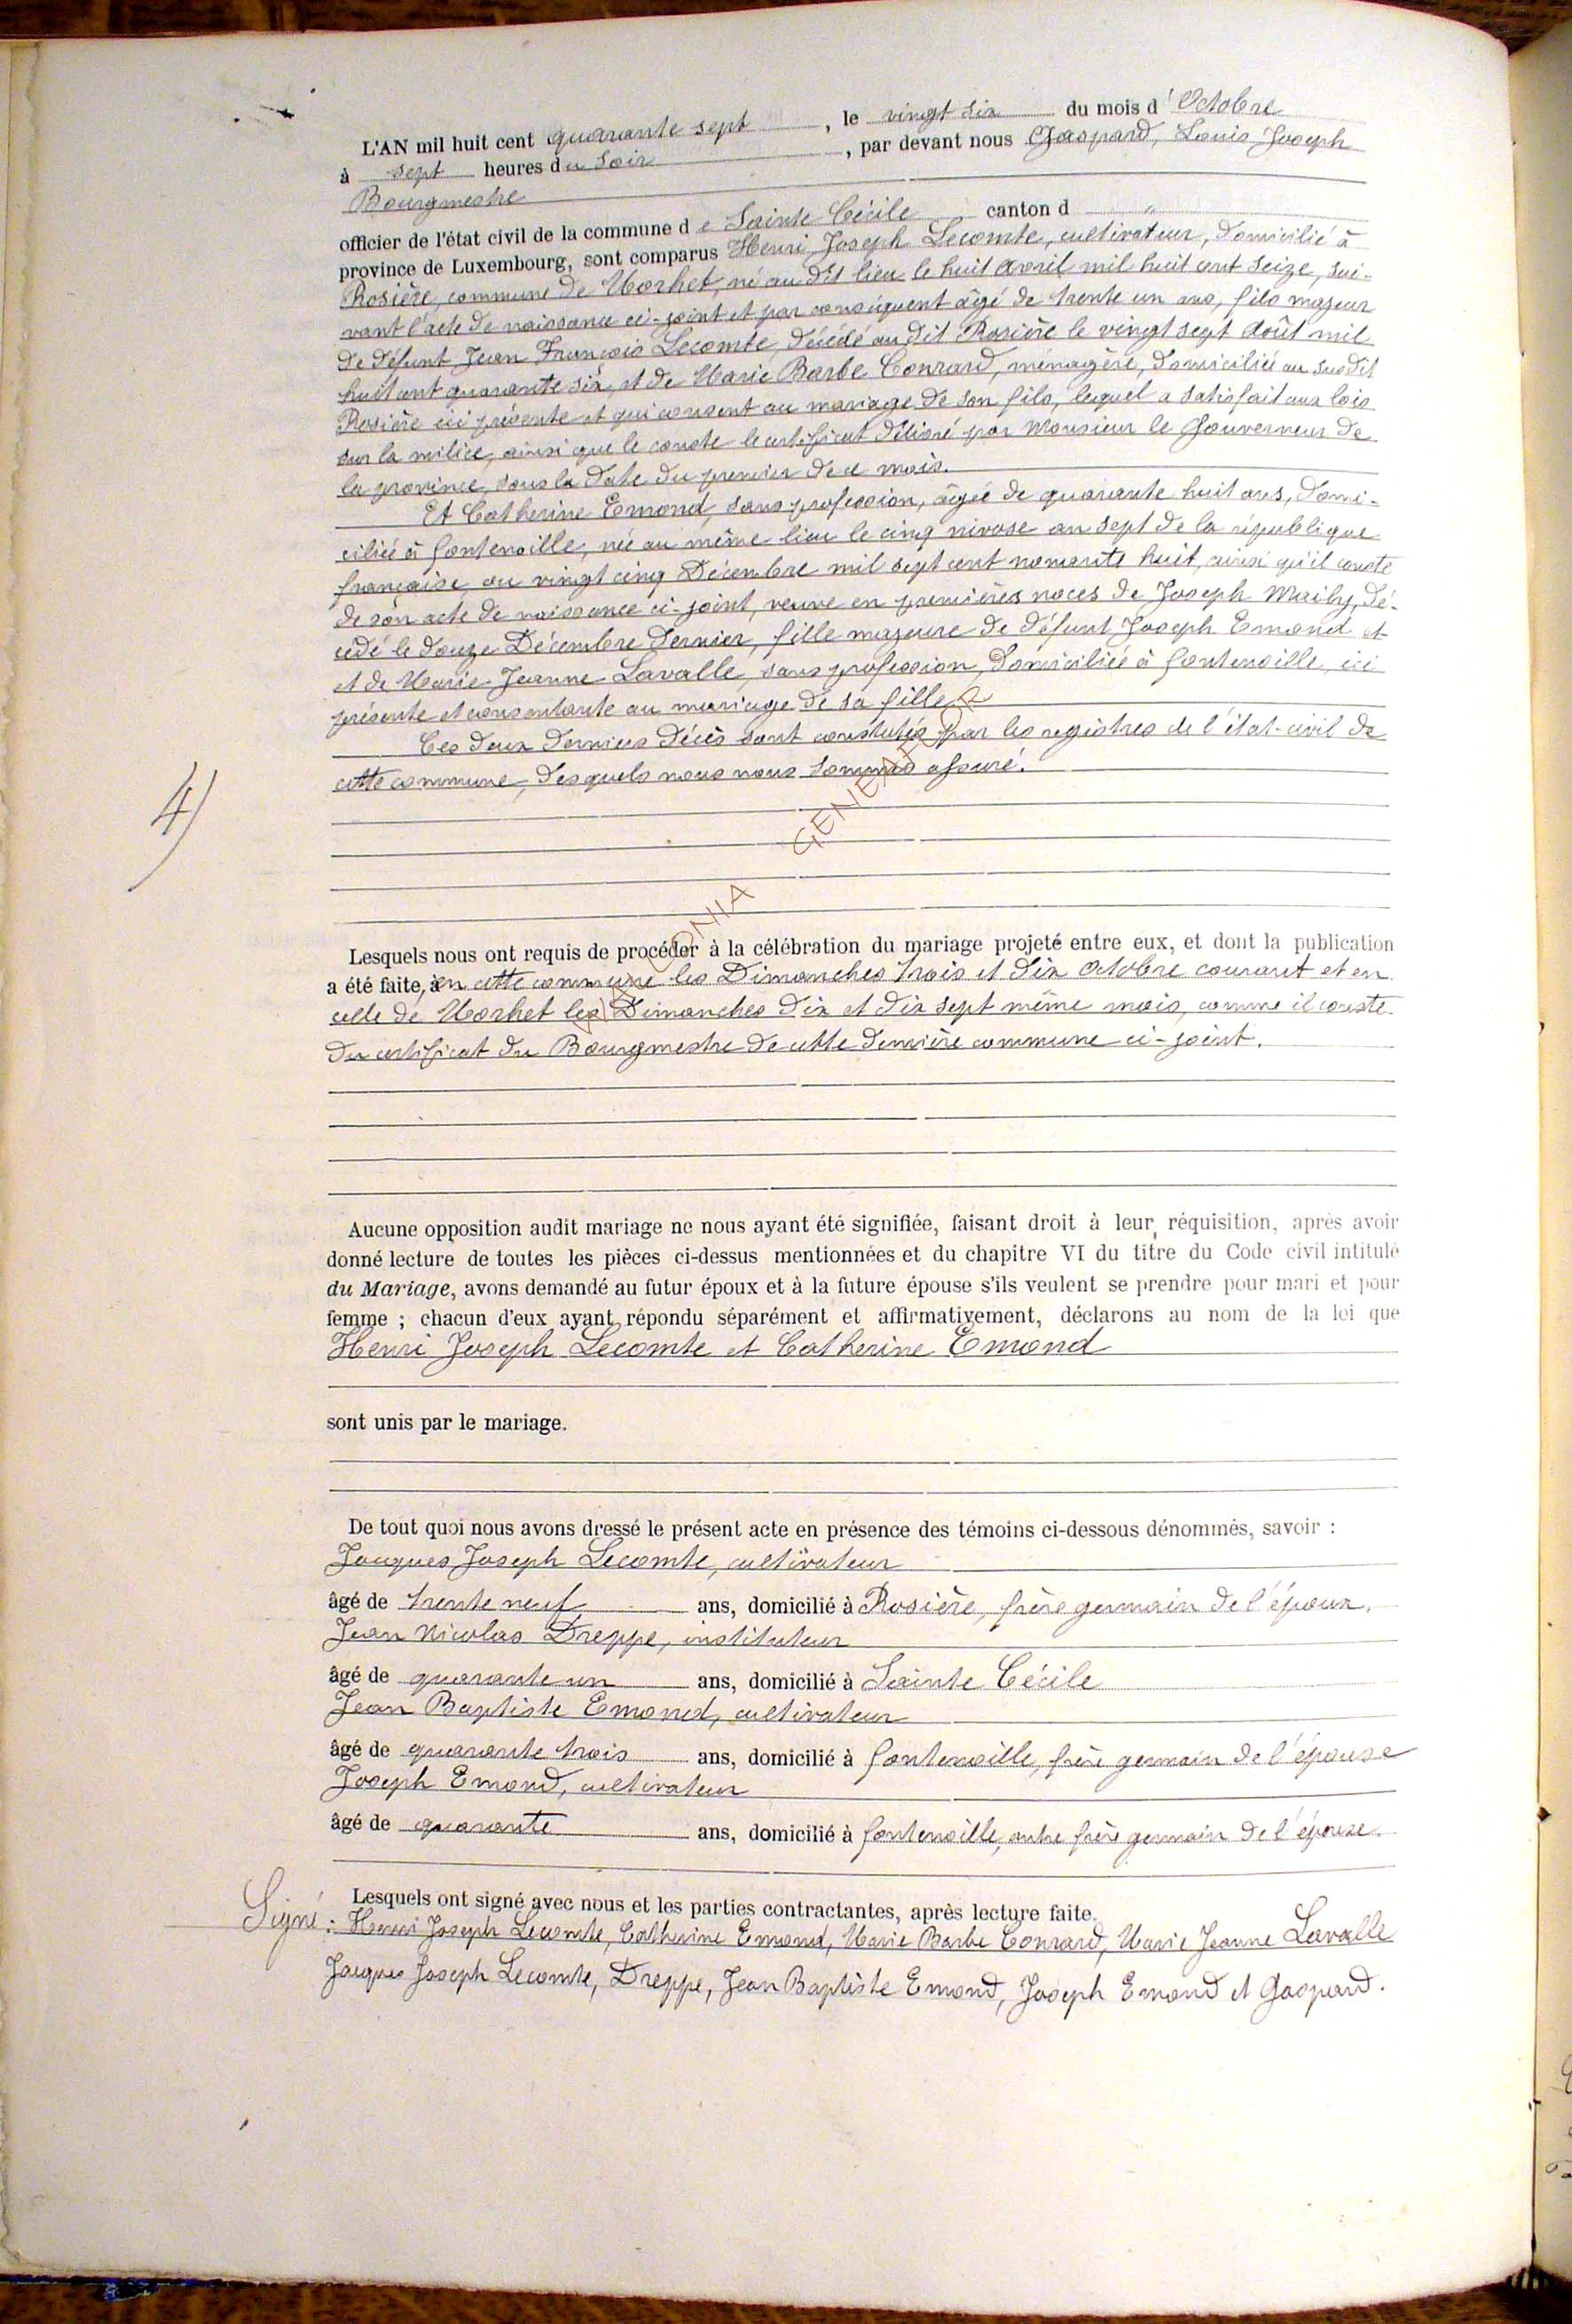 L'AN mil huit cent quarante sept, le vingt six du mois d'Octobre
à sept heures du soir, par devant nous Gaspard, Louis Joseph
Bourgmestre
officier de l'état civil de la commune de Sainte Cécile canton d "
province de Luxembourg, sont comparus Henri Joseph Lecomte, cultivateur, domicilié à
Rosière, commune de Morhet, né au dit lieu le huit Avril mil huit cent seize, sui-
vant l'acte de naissance ci-joint et par conséquent âgé de trente un ans, fils majeur
de défunt Jean François Lecomte, décédé au dit Rosière le vingt sept Août mil
huit cent quarante six, et de Marie Barbe Conrard, ménagère, domiciliée au susdit
Rosière ici présente et qui consent au mariage de son fils, lequel a satisfait aux lois
sur la milice, ainsi que le conste le certificat délivré par Monsieur le Gouverneur de
la province, sous la date du premier de ce mois.
Et Catherine Emond, sans profession, âgée de quarante huit ans, domi-
ciliée à fontenoille, née au même lieu le cinq nivose an sept de la république
française, ou vingt cinq Décembre mil sept cent nonante huit, ainsi qu'il conste
de son acte de naissance ci-joint, veuve en premières noces de Joseph Mailby, dé-
cédé le douze Décembre dernier, fille majeure de défunt Joseph Emond et
et de Marie Jeanne Lavallé, sans profession, domiciliée à fontenoille, ici
présente et consentante au mariage de sa fille.
Ces deux derniers décès sont constatés par les registres de l'état-civil de
cette commune, desquels nous nous sommes assuré.
4)
Lesquels nous ont requis de procéder à la célébration du mariage projeté entre eux, et dont la publication
a été faite, à en cette commune les Dimanches trois et dix Octobre courant et en
celle de Morhet les Dimanches dix et dix sept même mois, comme il conste
du certificat du Bourgmestre de cette dernière commune ci-joint.
Aucune opposition audit mariage ne nous ayant été signifiée, faisant droit à leur réquisition, après avoir
donné lecture de toutes les pièces ci-dessus mentionnées et du chapitre VI du titre du Code civil intitulé
du Mariage, avons demandé au futur époux et à la future épouse s'ils veulent se prendre pour mari et pour
femme ; chacun d'eux ayant répondu séparément et affirmativement, déclarons au nom de la loi que
Henri Joseph Lecomte et Catherine Emond
sont unis par le mariage.
De tout quoi nous avons dressé le présent acte en présence des témoins ci-dessous dénommés, savoir :
Jacques Joseph Lecomte, cultivateur
âgé de trente neuf ans, domicilié à Rosière, frère germain de l'époux,
Jean Nicolas Dreppe, instituteur
âgé de quarante un ans, domicilié à Sainte Cécile
Jean Baptiste Emond, cultivateur
âgé de quarante trois ans, domicilié à fontenoille, frère germain de l'épouse
Joseph Emond, cultivateur
âgé de quarante ans, domicilié à fontenoille, autre frère germain de l'épouse.
Lesquels ont signé avec nous et les parties contractantes, après lecture faite.
Signé : Henri Joseph Lecomte, Catherine Emond, Marie Barbe Conrard, Marie Jeanne Lavalle
Jacques Joseph Lecomte, Dreppe, Jean Baptiste Emond, Joseph Emond et Gaspard.